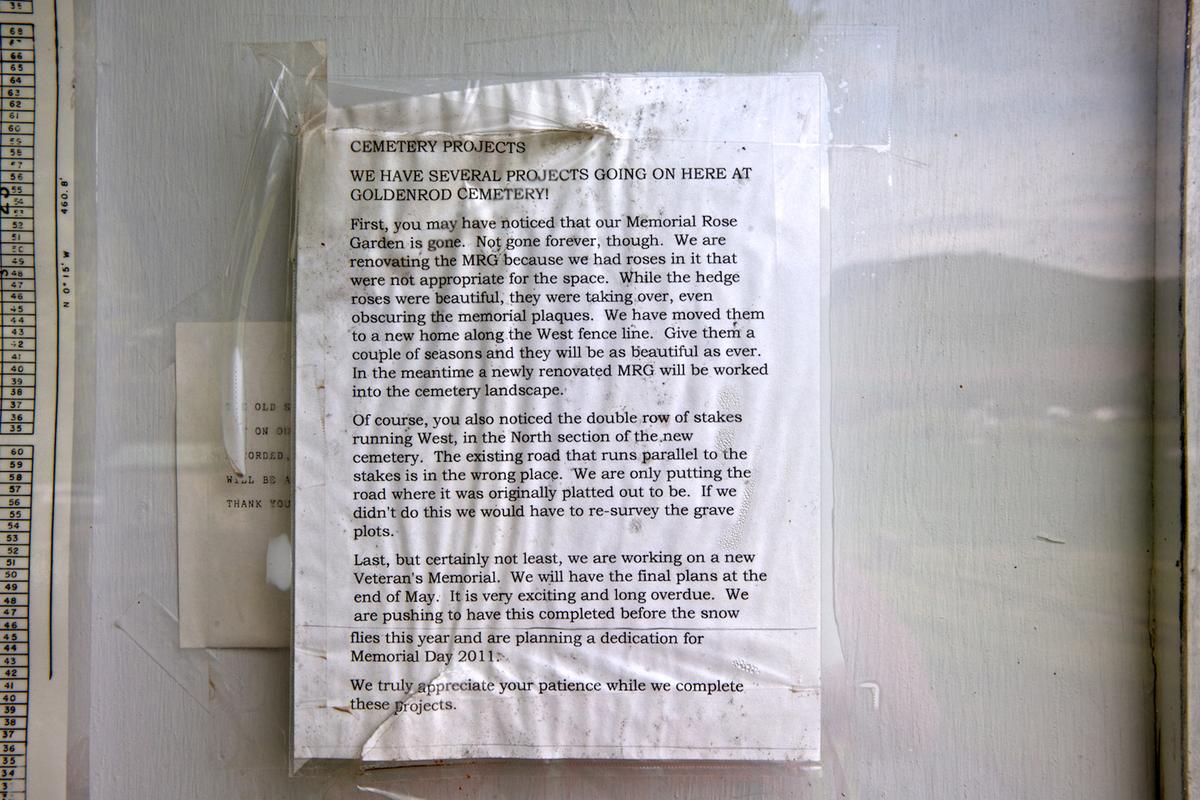 CEMETERY PROJECTS
WE HAVE SEVERAL PROJECTS GOING ON HERE AT
GOLDENROD CEMETERY!
First, you may have noticed that our Memorial Rose
Garden is gone. Not gone forever, though. We are
renovating the MRG because we had roses in it that
were not appropriate for the space. While the hedge
roses were beautiful, they were taking over, even
obscuring the memorial plaques. We have moved them
to a new home along the West fence line. Give them a
couple of seasons and they will be as beautiful as ever.
In the meantime a newly renovated MRG will be worked
into the cemetery landscape.
Of course, you also noticed the double row of stakes
running West, in the North section of the new
cemetery. The existing road that runs parallel to the
stakes is in the wrong place. We are only putting the
road where it was originally platted out to be. If we
didn't do this we would have to re-survey the grave
plots.
Last, but certainly not least, we are working on a new
Veteran's Memorial. We will have the final plans at the
end of May. It is very exciting and long overdue. We
are pushing to have this completed before the snow
flies this year and are planning a dedication for
Memorial Day 2011.
We truly appreciate your patience while we complete
these projects.
OLD
ON
WILL BE
THANK YOU
N 0°15' W 460.8'
68
66
65
64
63
62
61
60
58
56
55
52
51
49
48
47
46
45
44
43
42
41
40
39
38
37
36
35
60
59
58
57
56
55
54
53
52
51
50
49
48
47
46
45
44
43
42
41
40
39
38
37
36
35
34